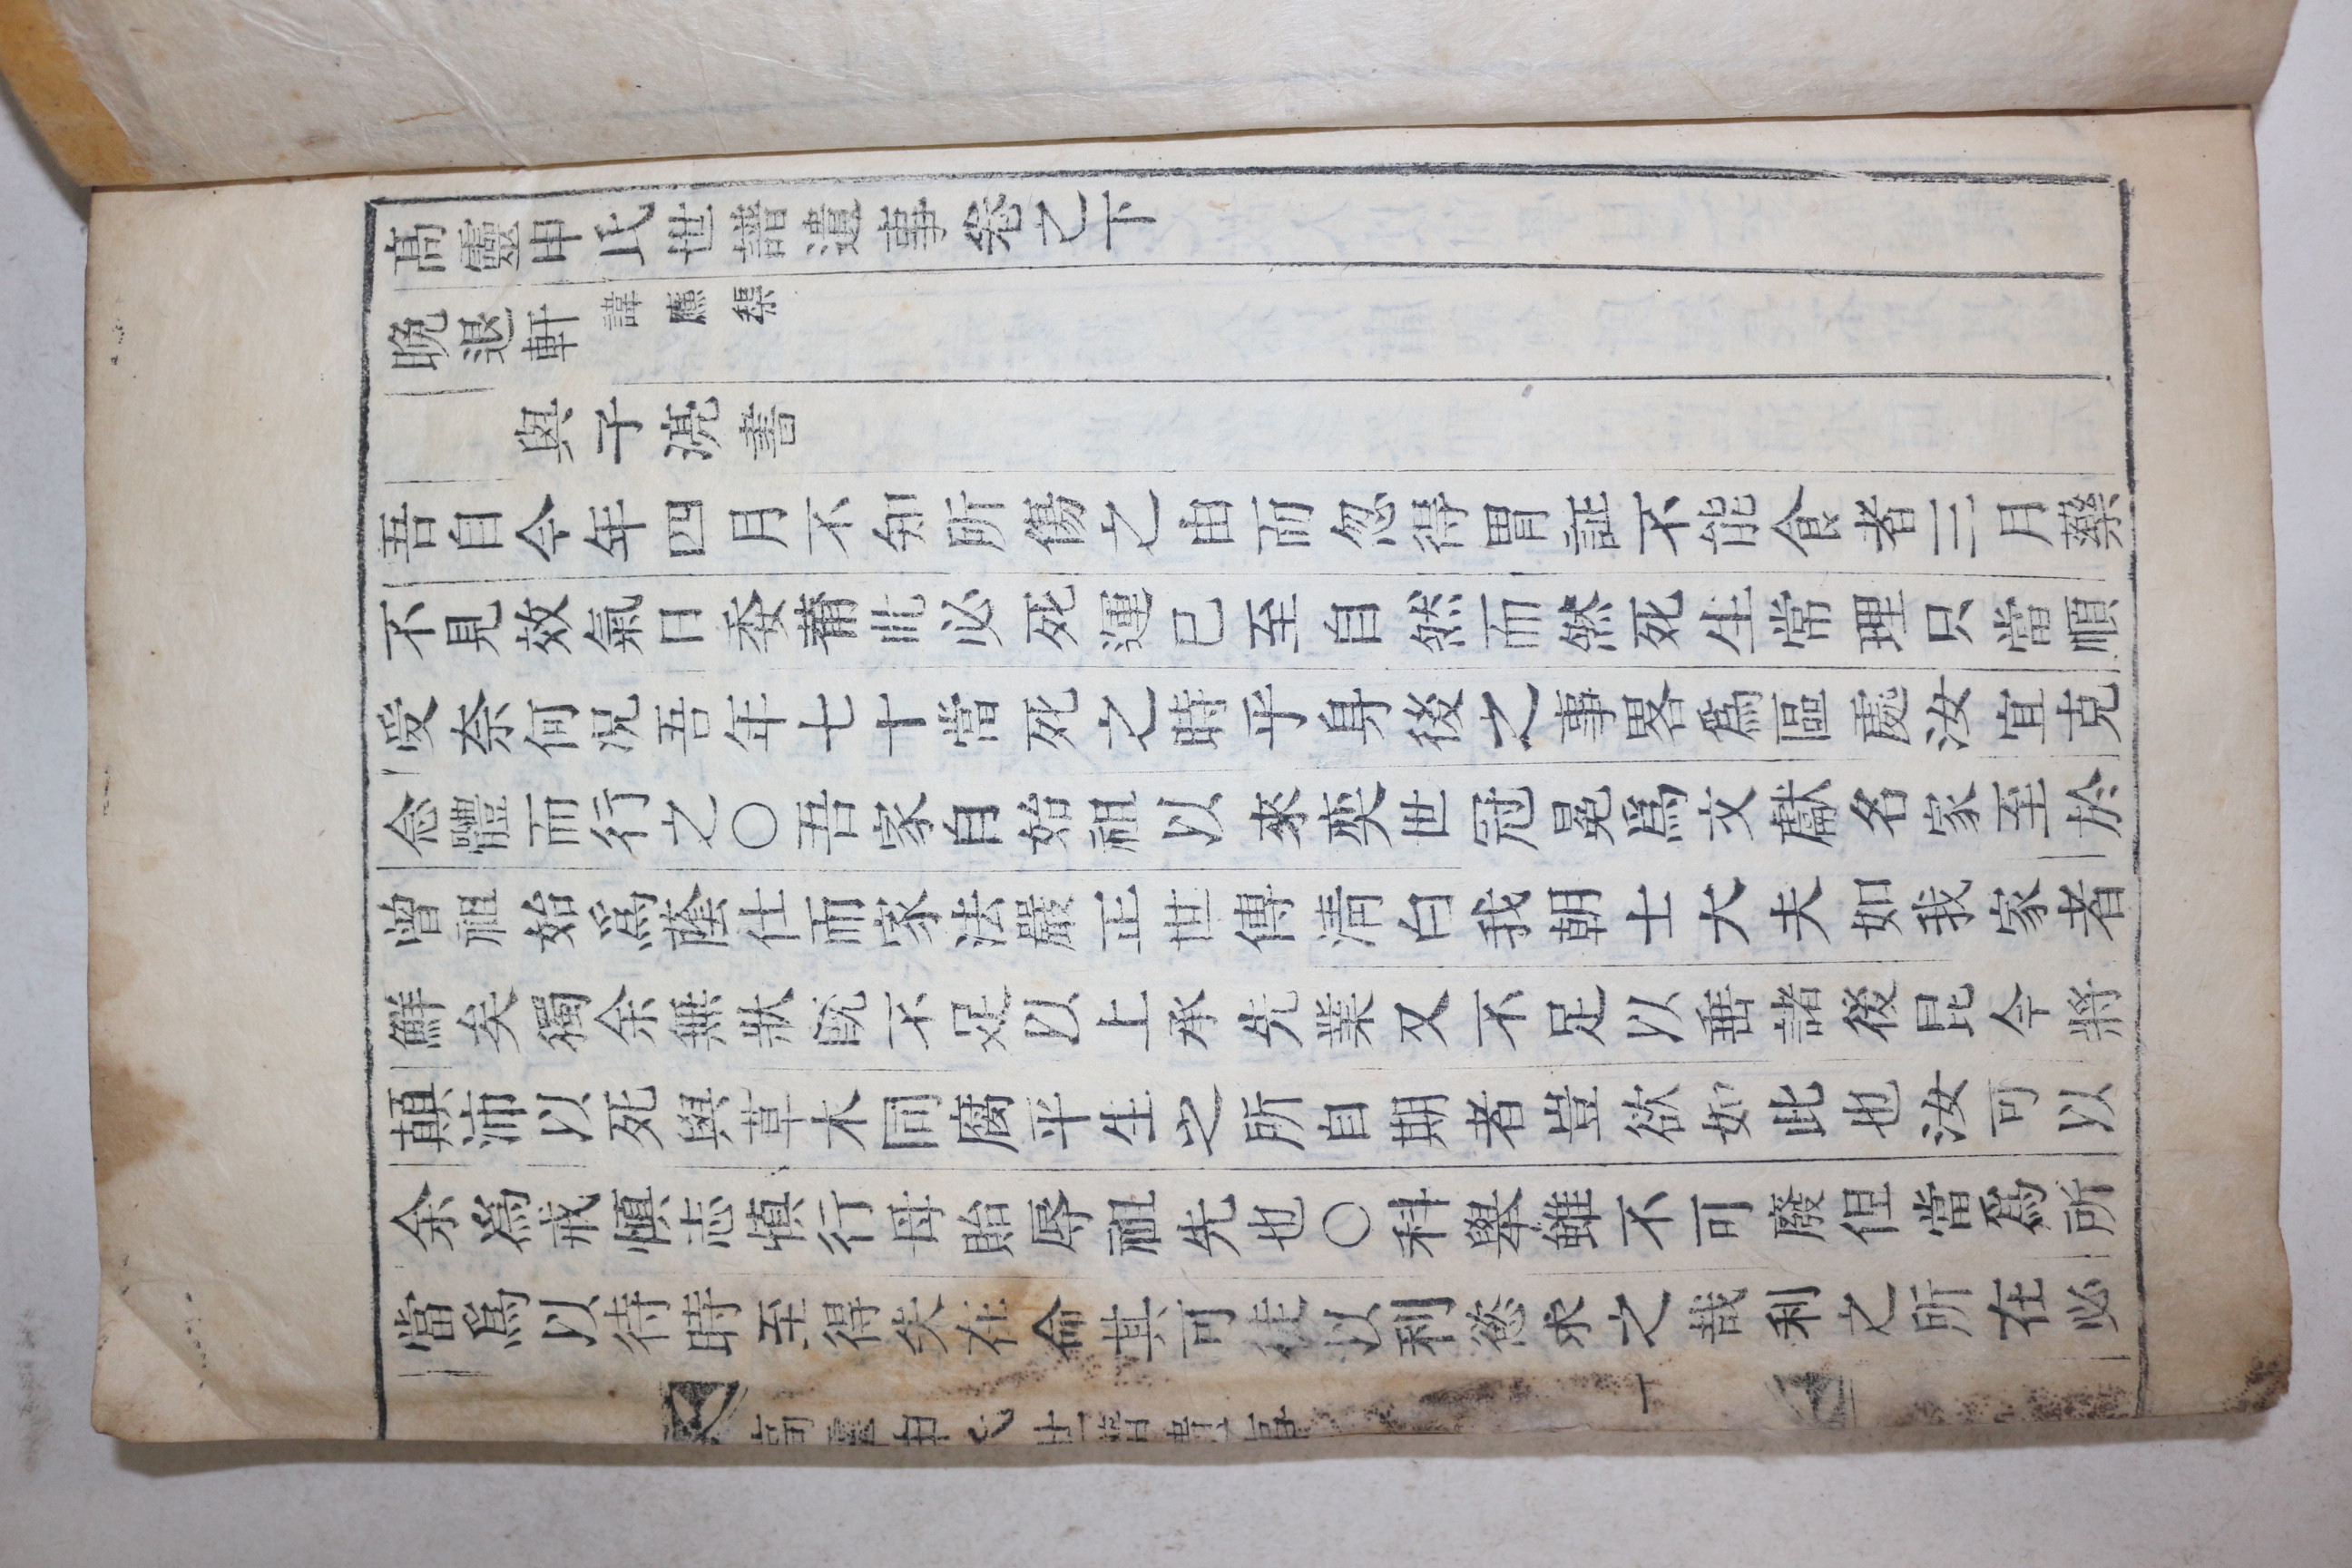 高靈申氏世譜遺事卷之下
晩退軒 諱應榘
與子湸書
吾自今年四月不知所傷之由而忽得胃証不能食者三月藥
不見效氣日委莆此必死運已至自然而然死生常理只當順
受奈何况吾年七十當死之時乎身後之事畧爲區處汝宜克
念體而行之○吾家自始祖以來奕世冠冕爲文獻名家至於
曾祖始爲蔭仕而家法嚴正世傳淸白我朝士大夫如我家者
鮮矣獨余無狀旣不足以上承先業又不足以垂諸後昆今將
顛沛以死與草木同腐平生之所自期者豈欲如此也汝可以
余爲戒愼志愼行毋貽辱祖先也○科擧雖不可廢但當爲所
當爲以待時至得失在命其可徒以利慾求之哉利之所在必
高靈申氏世譜遺事